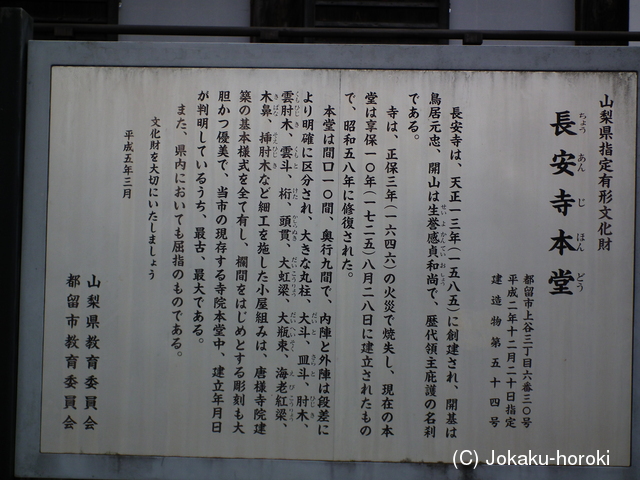 山梨県指定有形文化財
長安寺本堂
ちょう あん じ ほん どう
都留市上谷三丁目六番三〇号
平成二年十二月二十日指定
建造物第五十四号
長安寺は、天正一三年(一五八五)に創建され、開基は
鳥居元忠、開山は生誉感貞和尚で、歴代領主庇護の名刹
である。
寺は、正保三年(一六四六)の火災で焼失し、現在の本
堂は享保一〇年(一七二五)八月二八日に建立されたもの
で、昭和五八年に修復された。
本堂は間口一〇間、奥行九間で、内陣と外陣は段差に
より明確に区分され、大きな丸柱、大斗、皿斗、肘木、
雲肘木、雲斗、桁、頭貫、大虹梁、大瓶束、海老虹梁、
木鼻、挿肘木など細工を施した小屋組みは、唐様寺院建
築の基本様式を全て有し、欄間をはじめとする彫刻も大
胆かつ優美で、当市の現存する寺院本堂中、建立年月日
が判明しているうち、最古、最大である。
また、県内においても屈指のものである。
文化財を大切にいたしましょう
平成五年三月
山梨県教育委員会
都留市教育委員会
(C) Jokaku-horoki